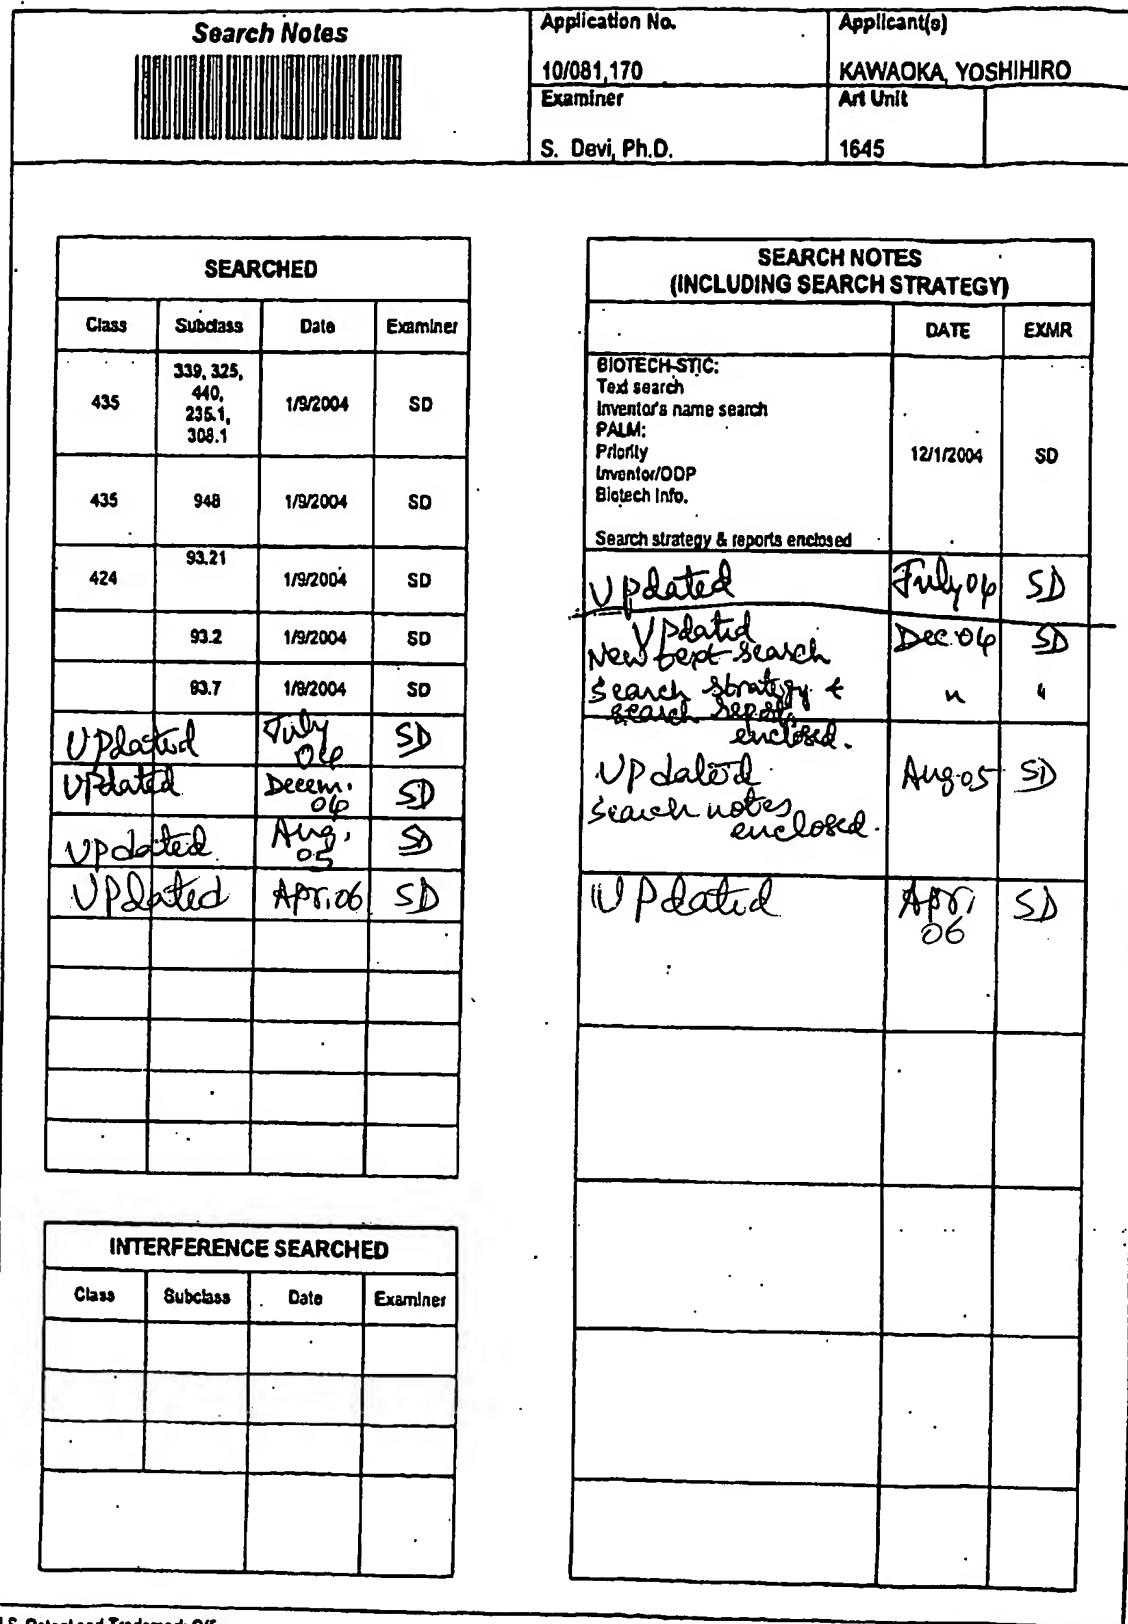 Search Notes
Application No.
10/081,170
Applicant(s)
KAWAOKA, YOSHIHIRO
Examiner
S. Devi, Ph.D.
Art Unit
1645
SEARCHED
Class Subclass Date Examiner
435 339, 325, 1/9/2004 SD
440,
235.1,
308.1
435 948 1/9/2004 SD
424 93.21 1/9/2004 SD
93.2 1/9/2004 SD
93.7 1/9/2004 SD
Updated July 04 SD
Updated Decem. 04 SD
Updated Aug. 05 SD
Updated Apr. 06 SD
INTERFERENCE SEARCHED
Class Subclass Date Examiner
SEARCH NOTES
(INCLUDING SEARCH STRATEGY)
DATE EXMR
BIOTECH-STIC:
Text search
Inventor's name search
PALM:
Priority 12/1/2004 SD
Inventor/ODP
Biotech Info.
Search strategy & reports enclosed
Updated July 04 SD
Updated Dec. 04 SD
New text search
Search strategy & " "
search reports
enclosed.
Updated Aug. 05 SD
Search notes
enclosed.
Updated Apr. 06 SD
U.S. Patent and Trademark